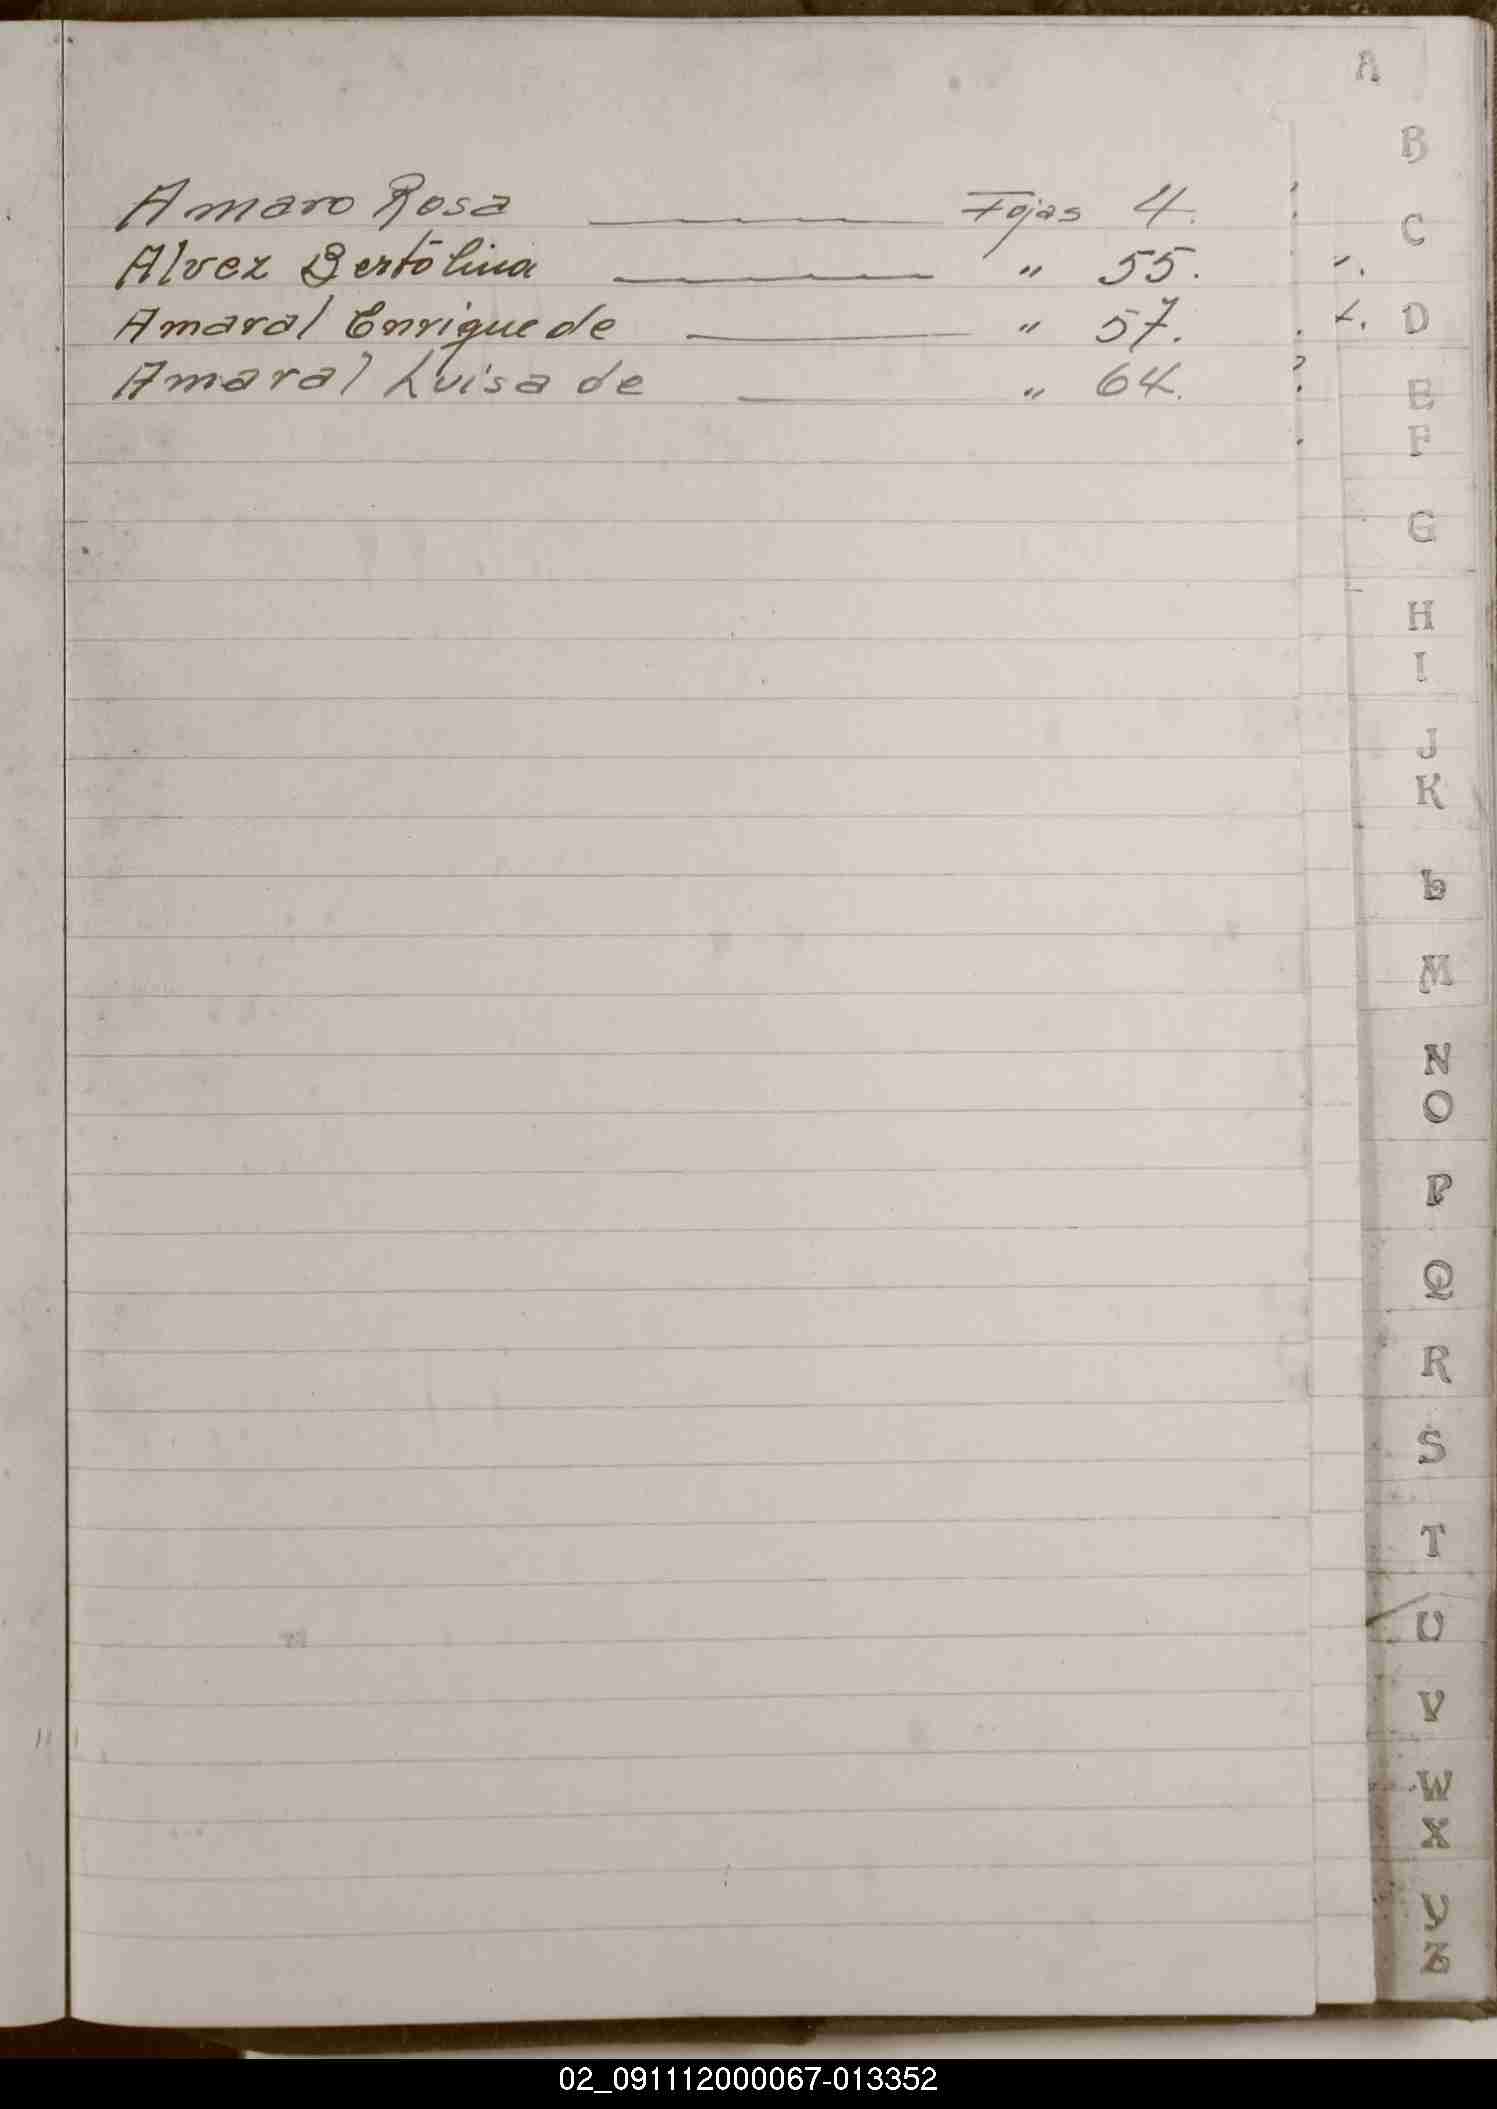 A
Amaro Rosa ——— Fojas 4.
Alvez Bertolina ——— " 55.
Amaral Enrique de ——— " 57.
Amaral Luisa de ——— " 64.
B
C
D
E
F
G
H
I
J
K
L
M
N
O
P
Q
R
S
T
U
V
W
X
Y
Z
02_091112000067-013352